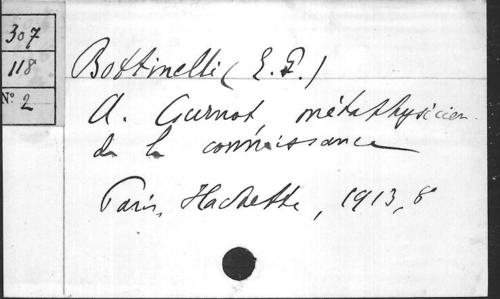 307
118
N° 2
Bottinelli (E. P.)
A. Cournot, métaphysicien
de la connaissance
Paris, Hachette, 1913, 8°